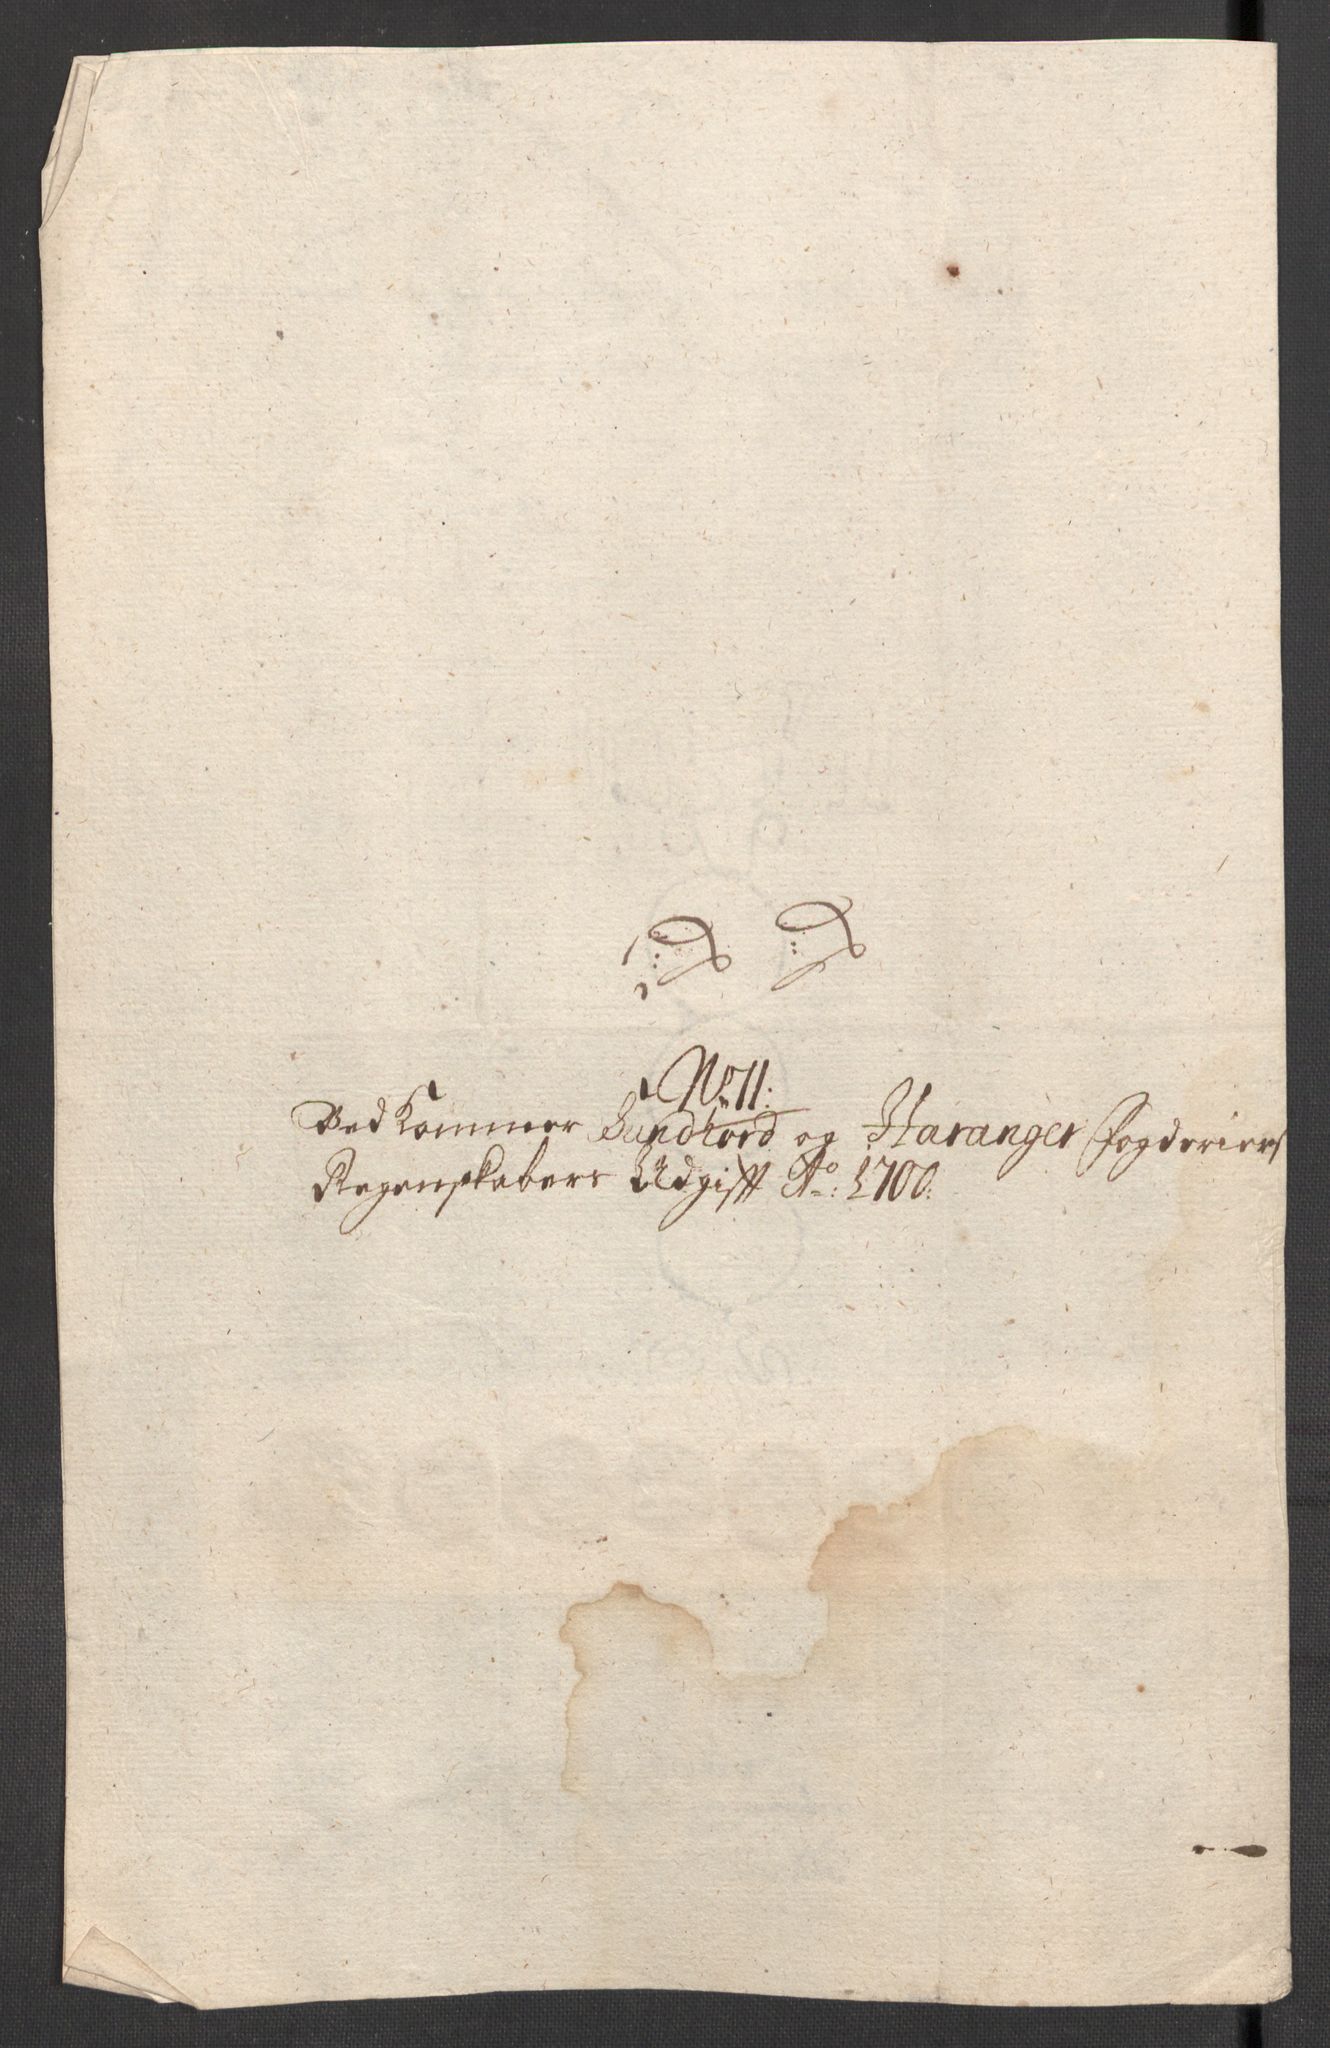 No 11:
Ved Kommer Sundhord og Haranger fogderiers
Regenskabers Udgifft Ao: 1700: